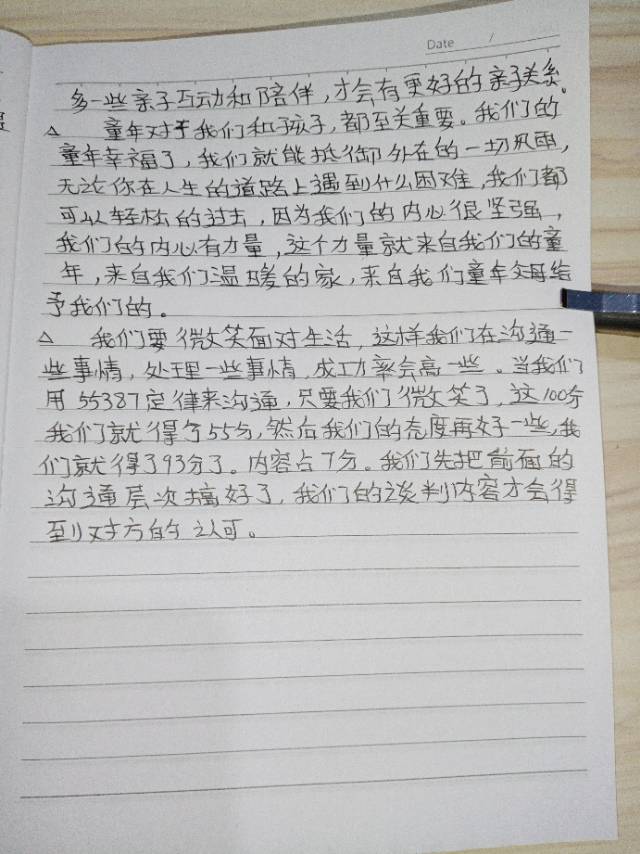 Date /
多一些亲子互动和陪伴，才会有更好的亲子关系。
△ 童年对于我们和孩子，都至关重要。我们的
童年幸福了，我们就能抵御外在的一切风雨，
无论你在人生的道路上遇到什么困难，我们都
可以轻松的过去，因为我们的内心很坚强，
我们的内心有力量，这个力量就来自我们的童
年，来自我们温暖的家，来自我们童年父母给
予我们的。
△ 我们要微笑面对生活，这样我们在沟通一
些事情，处理一些事情，成功率会高一些。当我们
用55387定律来沟通，只要我们微笑了，这100分
我们就得了55分，然后我们的态度再好一些，我
们就得了93分了。内容占7分。我们先把前面的
沟通层次搞好了，我们的谈判内容才会得
到对方的认可。